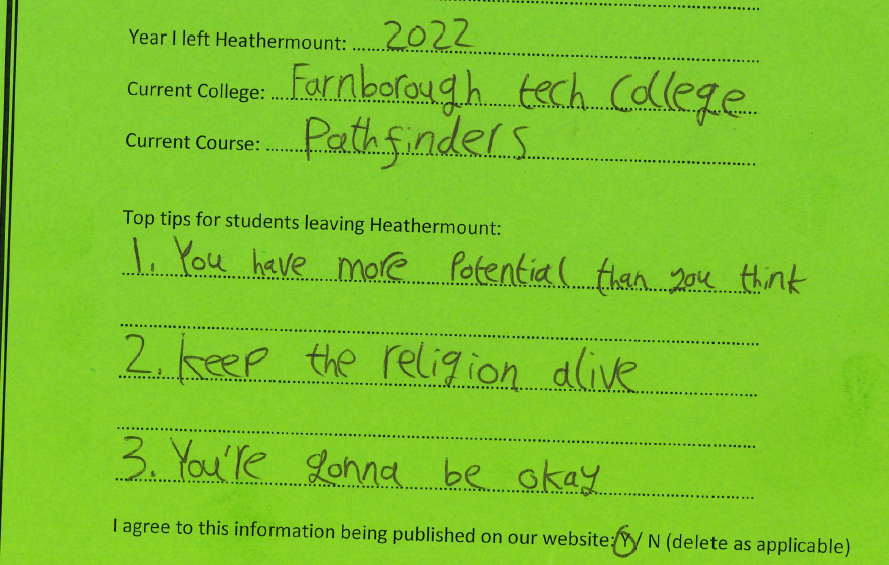 Year I left Heathermount: 2022
Current College: Farnborough tech College
Current Course: Pathfinders
Top tips for students leaving Heathermount:
1. You have more Potential than you think
2. keep the religion alive
3. You're gonna be okay
I agree to this information being published on our website: Y/ N (delete as applicable)